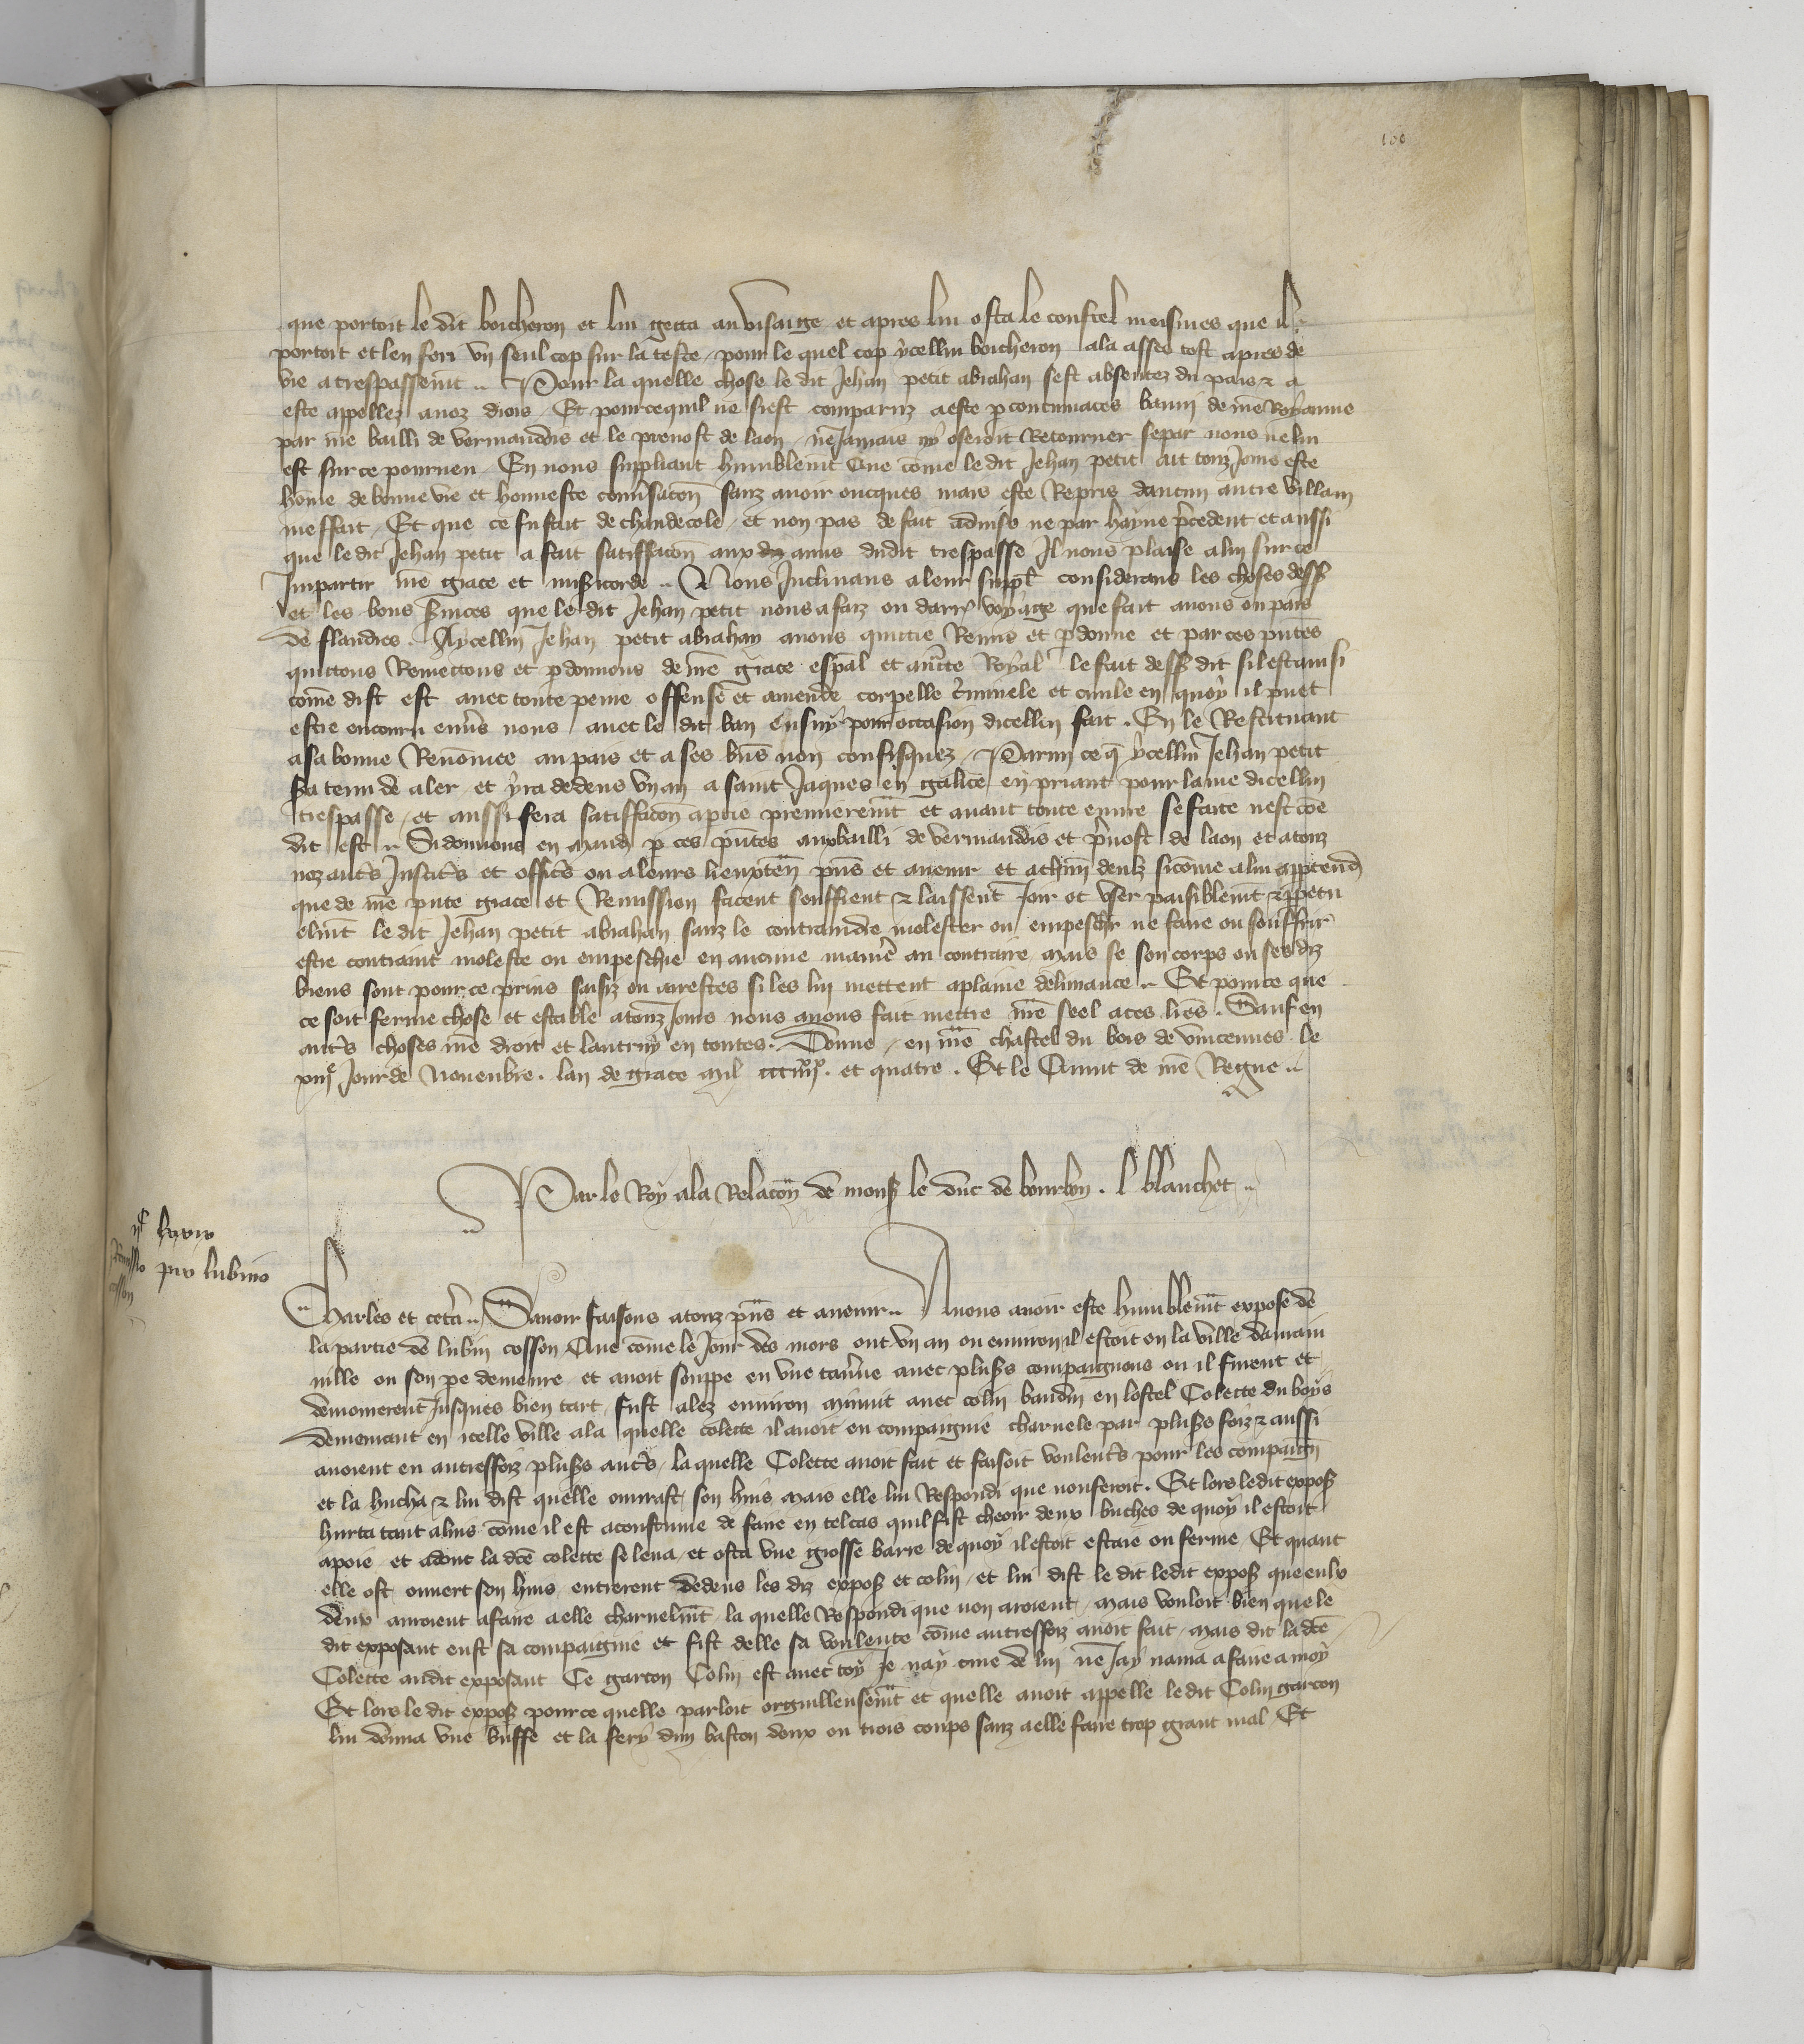 100
que portoit le dit boicheron et lui getta au visaige et apres lui osta le coustel meismes que il
portoit et len feri un seul cop sur la teste / pour le quel cop ycellui boicheron ala asseo tost apres de
vie a trespassemt .. Pour la quelle chose le dit Jehan petit abrahan sest absentez du pais & a
este appellez a noz drois / Et pour ce quil ne sest comparuz a este p contumaces banni de nre Royaume
par nre bailli de vermandois et le prevost de laon / ne Jamais ny oseroit Retourner se par nous ne lui
est sur ce pourveu / En nous supliant humblemt Que come le dit Jehan petit ait touz Jours este
home de bonne vie et honneste conversacon sanz avoir oncques mais este Repris daucun autre villain
meffait / Et que ce fu fait de chaude cole / et non pas de fait advise ne par hayne precedent et aussi
que le dit Jehan petit a fait satiffacon aux diz amis dudit trespasse Il nous plaise a lui sur ce
Impartir nre grace et misericorde .. Nous Inclinans a leur supl considerans les choses dess
et les bons services que le dit Jehan petit nous a faiz ou darr voyage que fait avons ou pais
de flandres . Aycellui Jehan petit abrahan avons quictie Remis et pdonne et par ces pntes
quictons Remectons et pdonnons de nre grace espal et auctte Royal le fait dess dit sil est ainsi
come dist est avec toute peine offense et amende corpelle criminele et civile en quoy il puet
estre encouru envs nous / avec le dit ban ensuy pour occasion dicellui fait . En le Restituant
a sa bonne Renomee au pais et a ses bns non confisquez / Parmi ce q ycellui Jehan petit
sa tenu de aler et yra dedens un an a saint Jaques en galice en priant pour lame dicellui
trespasse / et aussi fera satiffacon a ptie premieremt et avant toute euvre se faite nest coe
dit est .. Si donnons en mand p ces pntes aux bailli de vermandois et pvost de laon et a touz
noz autrs Justicrs et officrs ou a leurs lieuxten pns et avenir et a chun deulz si come a lui apptend
que de nre pnte grace et Remission facent seuffrent & laissent Joir et user paisiblemt & ppetu
elmt le dit Jehan petit abrahan sanz le contraindre molester ou empescher ne faire ou souffrir
estre contraint moleste ou empeschie en aucune maniere au contraire mais se son corps ou ses diz
biens sont pour ce prins saisiz ou arrestes si les lui mettent a plaine delivrance .. Et pour ce que
ce soit ferme chose et estable a touz Jours nous avons fait mectre nre seel a ces lres . Sauf en
autrs choses nre droit et lautruy en toutes . Donne / en nre chastel du bois de vincennes le
Jour de Novenbre . lan de grace mil ccc iiiixx et quatre . Et le Quint de nre Regne ..
Par le Roy a la Relacon de mons le duc de bourbon . l blanchet ..
iic lxxix
Remissio pro lubino
cosson
Charles et cetera .. Savoir faisons a touz pns et avenir .. A nous avoir este humblemt expose de
la partie de lubin cosson Que come le Jour des mors ont un an ou environ il estoit en la ville damain
ville ou son pe demeure / et avoit souppe en une tavrne avec plusrs compaignons ou il furent et
demourerent Jusques bien tart / fust alez environ minuit avec colin baudin en lostel Colecte du boys
demourant en icelle ville a la quelle colette il avoit eu compaignie charnele par plusrs foiz & aussi
avoient eu autresfoiz plusrs autrs / la quelle Colette avoit fait et faisoit voulentrs pour les compaign
et la hucha & lui dist quelle ouvrast son huis mais elle lui Respondi que non feroit . Et lors le dit expos
hurta tant a luis come il est acoustume de faire en tel cas quil fist cheoir deux buches de quoy il estoit
apoie et adont la dce colette se leva / et osta une grosse barre de quoy il estoit estaie ou ferme / Et quant
elle ost ouvert son huis entrerent dedens les diz expos et colin / et lui dist le dit ledit expos que eulx
deux auroient a faire a elle charnelmt / la quelle Respondi que non aroient / mais vouloit bien que le
dit exposant eust sa compaignie et fist delle sa voulente come autresfoiz avoit fait / mais dit la dce
Colette audit exposant Ce garcon Colin est avec toy Je nay cure de lui ne Jay naura a faire a moy
Et lors le dit expos pour ce quelle parloit orguilleusemt et quelle avoit appelle le dit Colin garcon
lui donna une buffe et la fery dun baston deux ou trois coups sanz a elle faire trop grant mal / Et